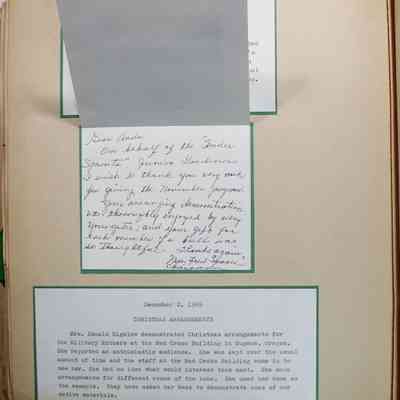 Dear Anda
On behalf of the "Tender
Sprouts" Junior Gardeners
I wish to thank you very much
for giving the November program.
Your arranging demonstration
was thoroughly enjoyed by every
youngster, and your gift for
each member of a bulb was
so thoughtful. Thanks again,
Mrs. Fred
December 2, 1969
CHRISTMAS ARRANGEMENTS
Mrs. Donald Bigelow demonstrated Christmas arrangements for
the Military Mothers at the Red Cross Building in Eugene, Oregon.
She reported an enthusiastic audience. She was kept over the usual
amount of time and the staff at the Red Cross Building came in to
see her. She had no idea what would interest them most. She made
arrangements for different rooms of the home. She used her home as
the example. They have asked her back to demonstrate uses of our
native materials.